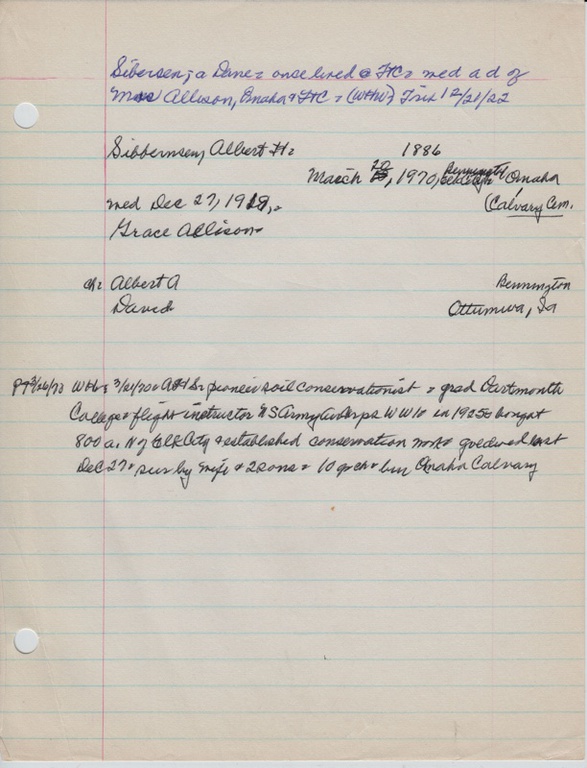 Sibersen, a Dane = once lived @ FtC = med a d of
Mos Allison, Omaha & FtC = (WHW) Trib 12/21/22
Sibbernsen, Albert H= 1886
March 20, 1970, Bennington, Omaha
med Dec 27, 1919,= (Calvary Cem.
Grace Allison=
ch= Albert A Bennington
David Ottumwa, Ia
PT 3/26/70 WHW= 3/21/70= AHS= pioneer soil conservationist = grad Dartmonth
College & flight instructor USArmy AirCorps WW1= in 1925= bought
800 a. N of Elk City & established conservation work= goldwed last
Dec 27= sur by wife & 2 sons = 10 grch = bur Omaha Calvary